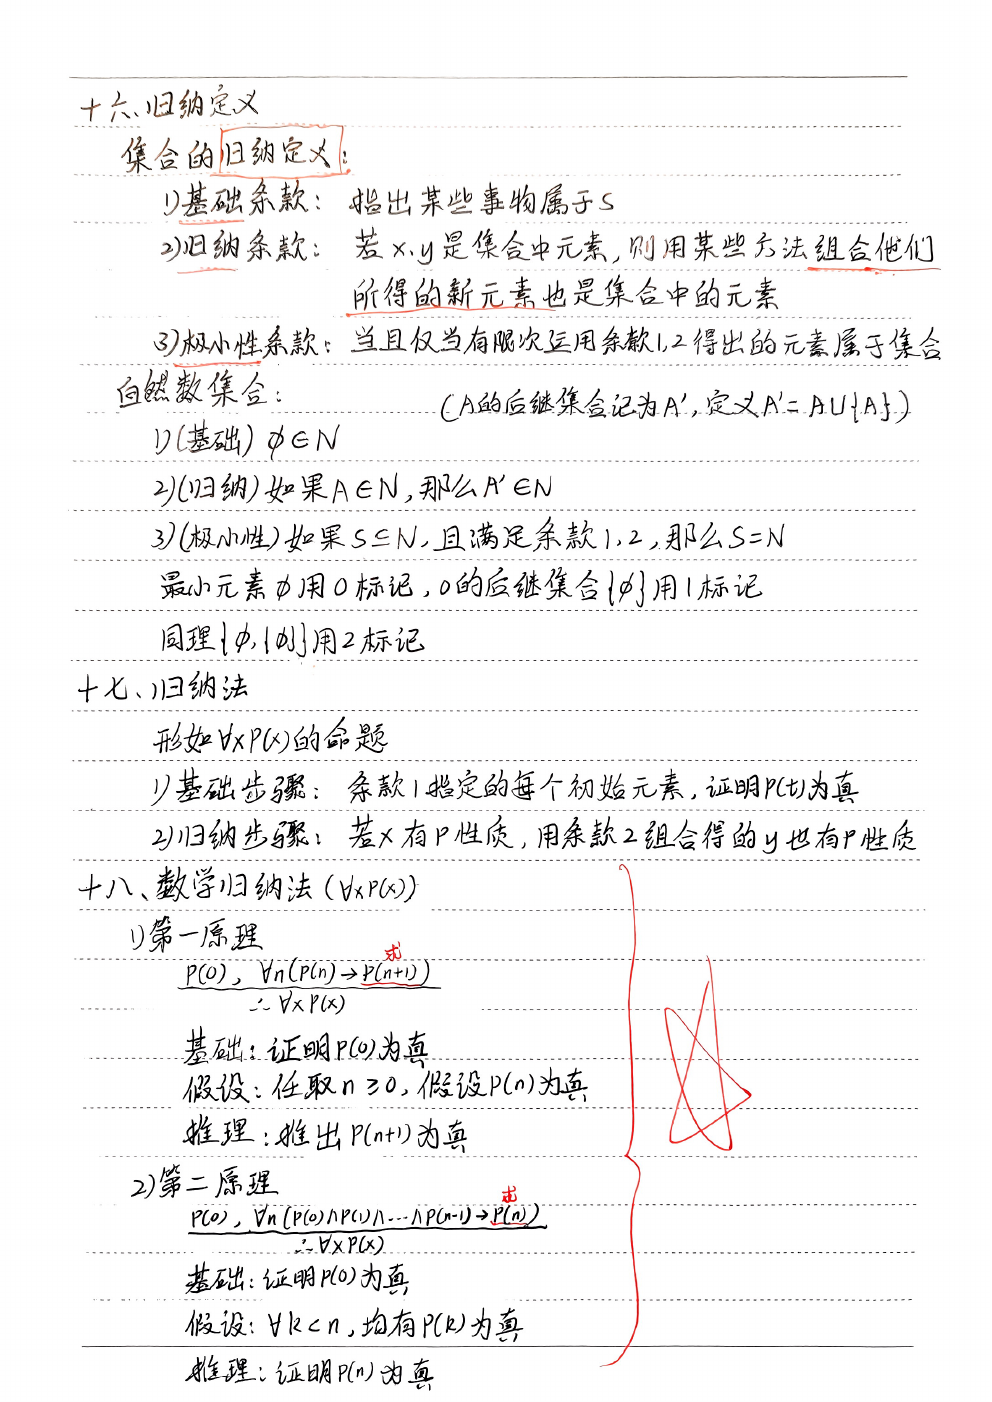 十六、归纳定义
集合的归纳定义:
1)基础条款: 指出某些事物属于S
2)归纳条款: 若x、y是集合中元素,则用某些方法组合他们
所得的新元素也是集合中的元素
3)极小性条款: 当且仅当有限次运用条款1,2得出的元素属于集合
自然数集合: (A的后继集合记为A′,定义A′=A∪{A})
1)(基础) ∅∈N
2)(归纳)如果A∈N,那么A′∈N
3)(极小性)如果S⊆N,且满足条款1,2,那么S=N
最小元素∅用0标记,0的后继集合{∅}用1标记
同理{∅,{∅}}用2标记
十七、归纳法
形如∀xP(x)的命题
1)基础步骤: 条款1指定的每个初始元素,证明P(t)为真
2)归纳步骤: 若x有P性质,用条款2组合得的y也有P性质
十八、数学归纳法(∀xP(x))
1)第一原理
求
P(0), ∀n(P(n)→P(n+1))
∴∀xP(x)
基础:证明P(0)为真
假设:任取n≥0,假设P(n)为真
推理:推出P(n+1)为真
2)第二原理
求
P(0), ∀n(P(0)∧P(1)∧…∧P(n-1)→P(n))
∴∀xP(x)
基础:证明P(0)为真
假设:∀k<n,均有P(k)为真
推理:证明P(n)为真